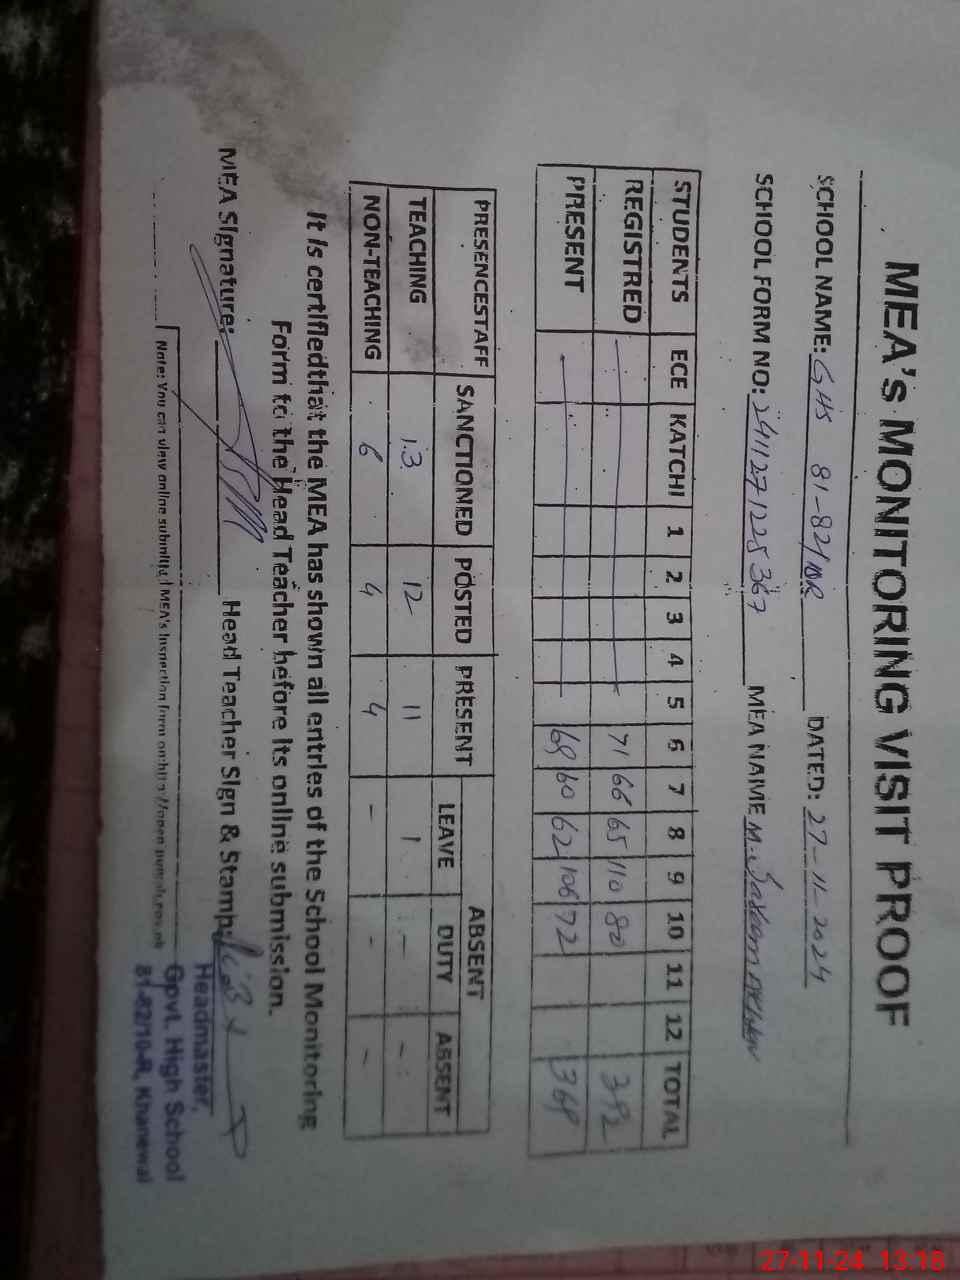 MEA's MONITORING VISIT PROOF
SCHOOL NAME: GHS 81-82/10R DATED: 27-11-2024
SCHOOL FORM NO: 2411271225367 MEA NAME M.
STUDENTS ECE KATCHI 1 2 3 4 5 6 7 8 9 10 11 12 TOTAL
REGISTRED 71 66 65 110 80 392
PRESENT 69 60 62 106 72 369
PRESENCESTAFF SANCTIONED POSTED PRESENT ABSENT
LEAVE DUTY ABSENT
TEACHING 13 12 11 1 - -
NON-TEACHING 6 4 4 - - -
It is certifiedthat the MEA has shown all entries of the School Monitoring
Form to the Head Teacher before its online submission.
MEA Signature: Head Teacher Sign & Stamp:
Headmaster,
Govt. High School
81-82/10-R, Khanewal
Note: You can view online submitted MEA's Inspection form on:http://open.punjab.gov.pk
27-11-24 13:18